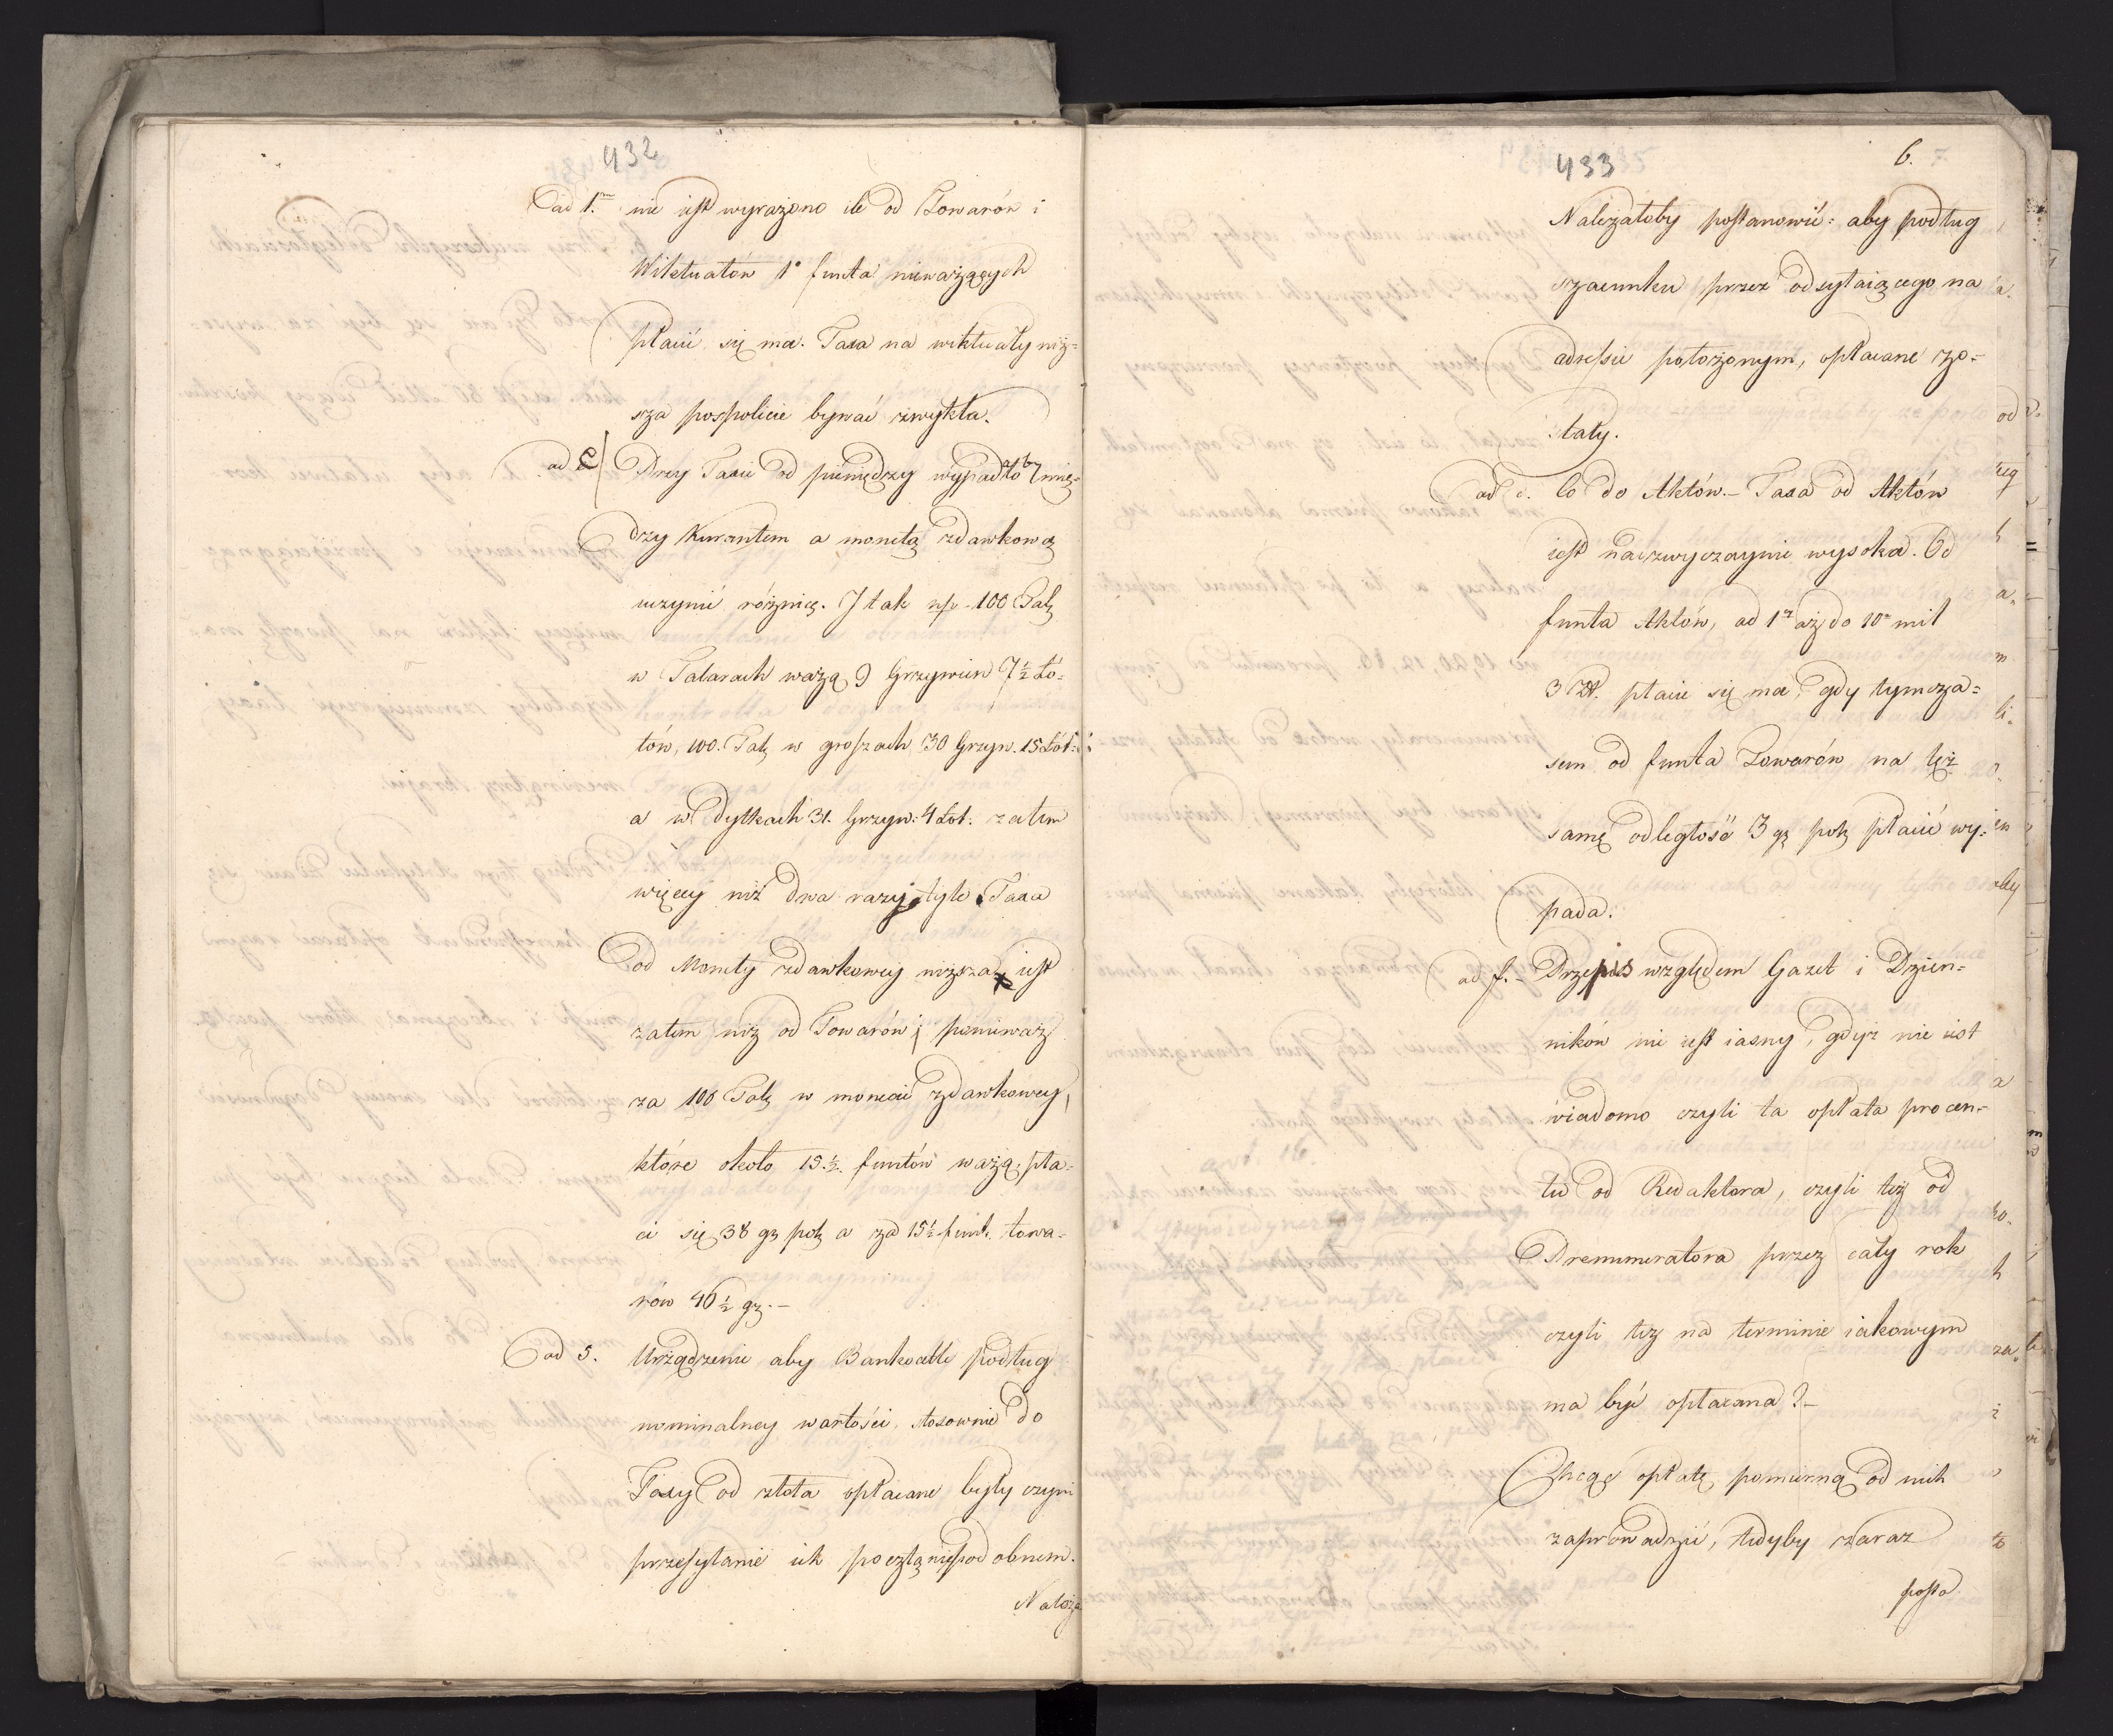 432
ad 1mo nie iest wyrażono ile od Towarów i
Wiktuałów 1o funta nieważących
płacić się ma. Taxa na wiktuały niż=
sza pospolicie bywać zwykła.
ad e/ Przy Taxie od pieniędzy wypadałoby mię=
dzy Kurantem a monetą zdawkową
uczynić różnicę. I tak np. 100 Tal.
w Talarach ważą 9 Grzywien 7½ Ło=
tów, 100. Tal. w groszach 30 Grzyw. 15 Łót:
a w Dytkach 31. Grzyw: 4 Łot: zatem
więcey niż dwa razy tyle. Taxa
od Monety zdawkowey niższa iest
zatem niż od Towarów; ponieważ
za 100 Tal. w monecie zdawkowey,
które około 15.½. funtów ważą, pła=
ci się 38 gr. pol. a za 15½ funt. towa=
rów 46½ gr. –
ad 5. Urządzenie aby Bankocetle podług
nominalney wartości, stosownie do
Taxy od złota opłacane były czyni
przesyłanie ich pocztą niepodobnem.
Należa
433
6. 7.
Należałoby postanowić: aby podług
szacunku przez odsyłaiącego na
adressie położonym, opłacane zo=
stały.
ad c. Co do Aktów. – Taxa od Aktów
iest nadzwyczaynie wysoka. Od
funta Aktów, od 1ey aż do 10u mil
3 Zł. płacić się ma, gdy tymcza=
sem od funta Towarów na tęż
samę odległość 3 gr. pol. płacić wy=
pada.
ad f. – Przepis względem Gazet i Dzien=
ników nie iest iasny, gdyż nie iest
wiadomo czyli ta opłata procen=
tu od Redaktora, czyli też od
Prenumeratora przez cały rok
czyli też na terminie iakowym
ma być opłacana? –
Chcąc opłatę pomierną od nich
zaprowadzić, tedyby zaraz
posta